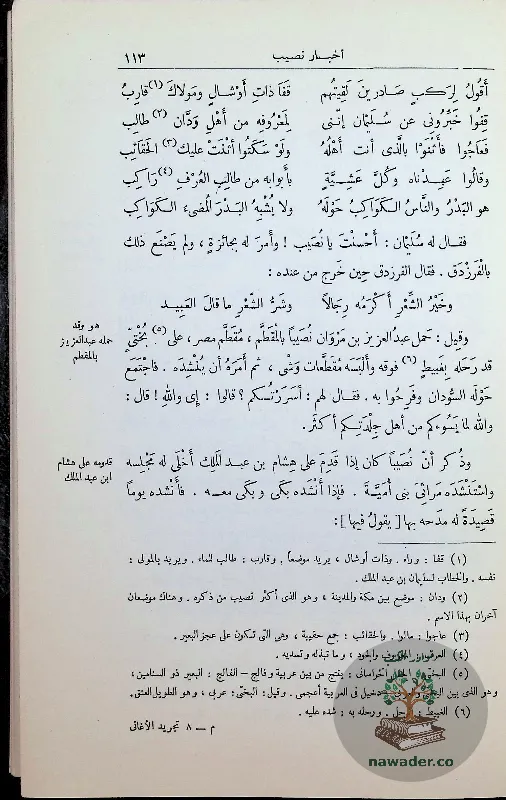 أخبار نصيب
١١٣
أَقُولُ لِرَكْبٍ صَادِرِينَ لَقِيتُهم قَفَا ذاتِ أَوْشالٍ ومَولاكَ (١) قاربُ
قِفُوا خَبِّرُونى عن سُلَيْمَان إنَّنى لِمَعْرُوفِه من أَهْلِ وَدَّان (٢) طالِبُ
فَعاجُوا فأَثْنَوْا بالَّذى أنت أَهْلُهُ ولَوْ سَكَتُوا أَثْنَتْ عليكَ (٣) الحَقَائِبُ
وقالُوا عَهِدْناه وكُلَّ عَشِيَّةٍ بأَبوابه من طالِبِ العُرْفِ (٤) رَاكِبُ
هو البَدْرُ والنَّاسُ الكَوَاكِبُ حَوْلَهُ ولا يُشْبِهُ البَدْرَ المُضِىءَ الكَوَاكِبُ
فقال له سُلَيْمان : أَحْسَنْتَ يا نُصَيب ! وأمرَ له بجائزةٍ ، ولم يَصْنَع ذلك
بالفَرَزدَقِ . فقال الفرزدق حِين خَرج من عنده :
وخَيْرُ الشِّعْرِ أَكْرَمُه رِجالاً وشَرُّ الشِّعْرِ ما قالَ العَبِيد
هو وقد
حمله عبدالعزيز
بالمقطم
وقيل : حَمل عبدُ العزيز بن مَرْوَان نُصَيباً بالمُقَطَّم ، مُقَطَّم مصر ، على (٥) بُخْتِىّ
قد رَحَله بغَبِيطٍ (٦) فوقه وأَلْبَسَه مُقَطَّعات وَشْى ، ثم أَمَرَهُ أن يُنْشِدَه . فاجْتَمَع
حَوْلَه السُّودان وفَرِحُوا به . فقال لهم : أَسرَرْتُكم ؟ قالوا : إى واللهِ ! قال :
والله لمَا يَسُوءكم من أهل جِلْدَتِكم أَكْثَر .
قدومه على هشام
ابن عبد الملك
وذُكر أنّ نُصَيباً كان إذا قَدِمَ على هِشام بن عبد المَلِك أَخْلَى له مَجْلِسه
واسْتَنشَدَه مَرَاثِىَ بنى أُمَيَّةَ . فإذا أَنْشَدَه بَكَى وبَكَى معه . فأَنْشده يوماً
قَصِيدَةً له مَدحه بها [يقولُ فيها] :
(١) قفا : وراء . وذات أوشال ، يريد موضعاً . وقارب : طالب للماء . ويريد بالمولى :
نفسه . والخطاب لسليمان بن عبد الملك .
(٢) ودان : موضع بين مكة والمدينة ، وهو الذى أكثر نصيب من ذكره . وهناك موضعان
آخران بهذا الاسم .
(٣) عاجوا : مالوا . والحقائب : جمع حقيبة ، وهى التى تكون على عجز البعير .
(٤) العرف : والجود ، وما تبذله وتسديه .
(٥) الخراسانى : ينتج من بين عربية وفالج – الفالج : البعير ذو السنامين ،
وهو الذى بين دخيل فى العربية أعجمى . وقيل : البختى : عربى ، وهو الطويل العنق.
(٦) الغبيط : . ورحله به : شده عليه .
م – ٨ تجريد الأغانى
nawader.co